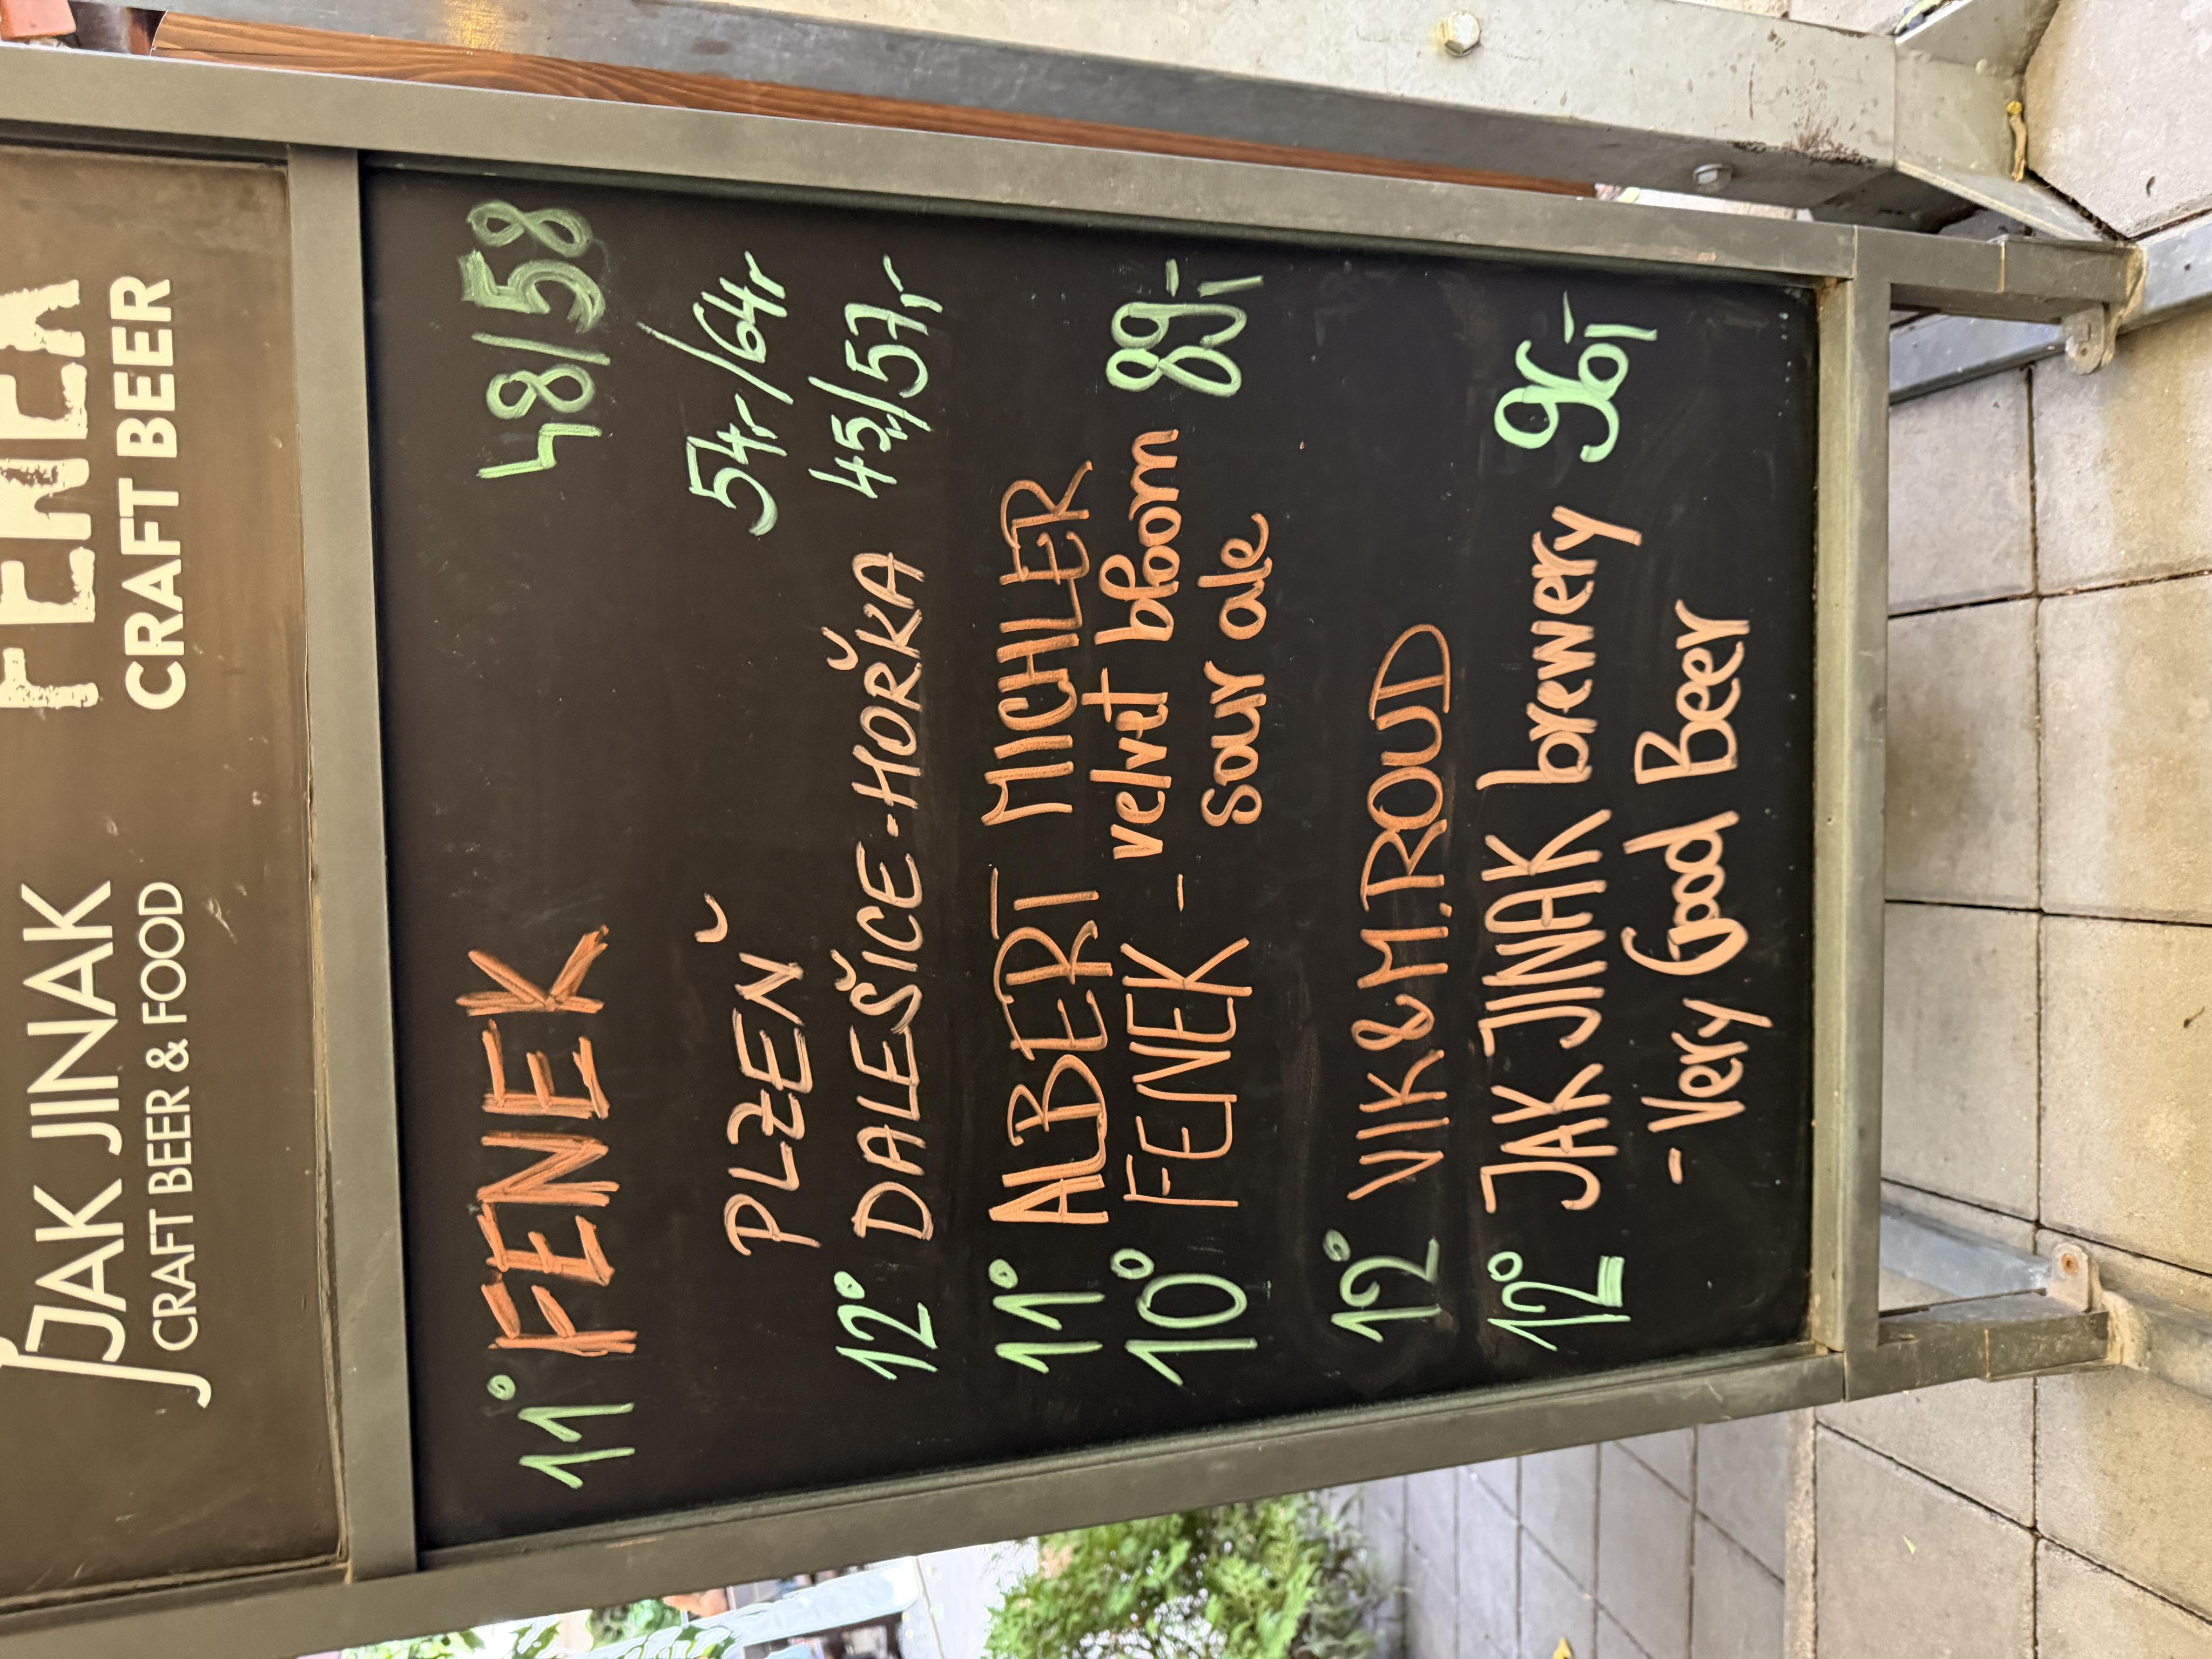 JAK JINAK
CRAFT BEER & FOOD
FENEK
CRAFT BEER
11° FENEK 48/58
PLZEŇ 54,-/64,-
12° DALEŠICE-HOŘKÁ 45/57,-
11° ALBERT MICHLER
10° FENEK - velvet bloom 89,-
sour ale
12° VIK & M.ROUD
12° JAK JINAK brewery 96,-
- Very Good Beer